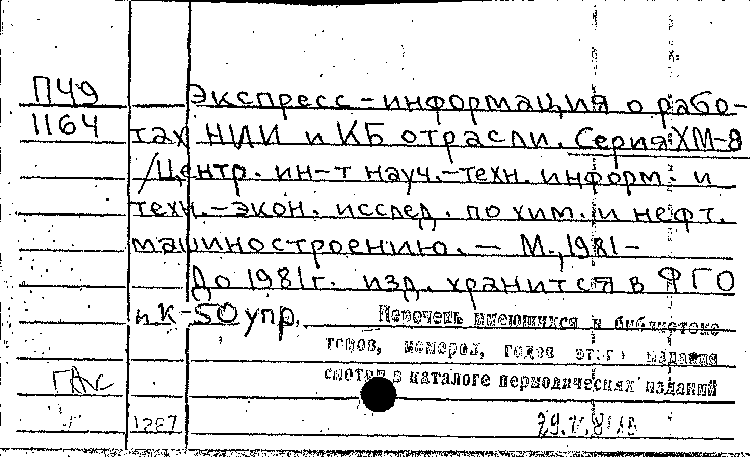 П49
1164
Экспресс-информация о рабо-
тах НИИ и КБ отрасли. Серия ХМ-9
/Центр. ин-т науч.-техн. информ. и
техн.-экон. исслед. по хим. и нефт.
машиностроению. — М., 1981 –
До 1981г. изд. хранится в ФГО
п.К-50 упр.
Перечень имеющихся в библиотеке
томов, номеров, годов этого издания
смотри в каталоге периодических изданий
1287